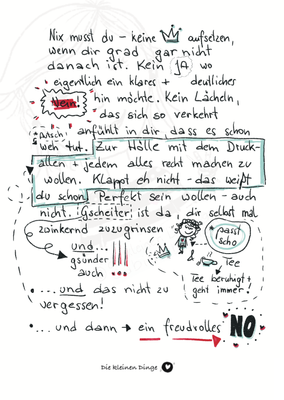 Nix musst du – keine 👑 aufsetzen,
wenn dir grad gar nicht
danach ist. Kein JA wo
eigentlich ein klares + deutliches
Nein. hin möchte. Kein Lächeln,
das sich so verkehrt
falsch anfühlt in dir, dass es schon
weh tut. Zur Hölle mit dem Druck-
allen + jedem alles recht machen zu
wollen. Klappt eh nicht - das weißt
du schon. Perfekt sein wollen - auch
nicht. Gscheiter ist da, dir selbst mal
zwinkernd zuzugrinsen
und...
gsünder
auch !!!
passt
scho
Tee
Tee beruhigt +
geht immer!
• ....und das nicht zu
vergessen!
• ... und dann → ein freudvolles NO
Die kleinen Dinge